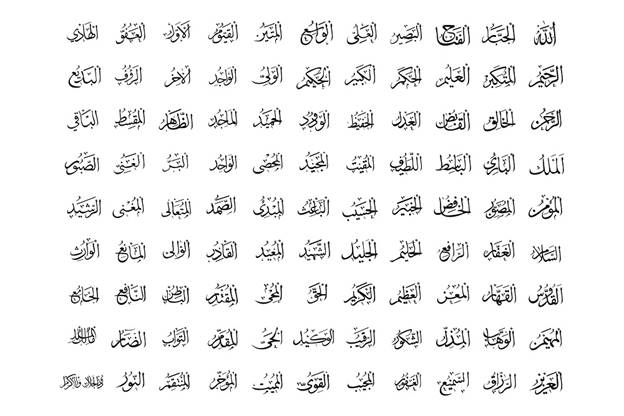 الله الجبار الفتاح البصير العلي الواسع المتين القيوم الأول العفو الهادي
الرحيم المتكبر العليم الحكم الكبير الحكيم الولي الواجد الآخر الرؤوف البديع
الرحمن الخالق القابض العدل الحفيظ الودود الحميد الماجد الظاهر المقسط الباقي
الملك البارئ الباسط اللطيف المقيت المجيد المحصي الواحد البر الغني الصبور
المؤمن المصور الخافض الخبير الحسيب الباعث المبدئ الصمد المتعالي المغني الرشيد
السلام الغفار الرافع الحليم الجليل الشهيد المعيد القادر الوالي المانع الوارث
القدوس القهار المعز العظيم الكريم الحق المحيي المقتدر الباطن النافع الجامع
المهيمن الوهاب المذل الشكور الرقيب الوكيل الحي المقدم التواب الضار مالك الملك
العزيز الرزاق السميع الغفور المجيب القوي المميت المؤخر المنتقم النور ذو الجلال والإكرام